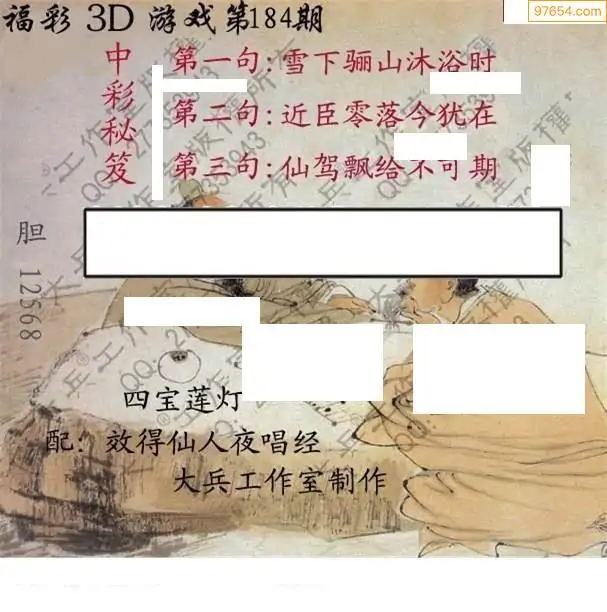 97654.com
福彩 3D 游戏第184期
中彩秘笈
第一句:雪下骊山沐浴时
第二句:近臣零落今犹在
第三句:仙驾飘给不可期
胆 12568
四宝莲灯
配：效得仙人夜唱经
大兵工作室制作